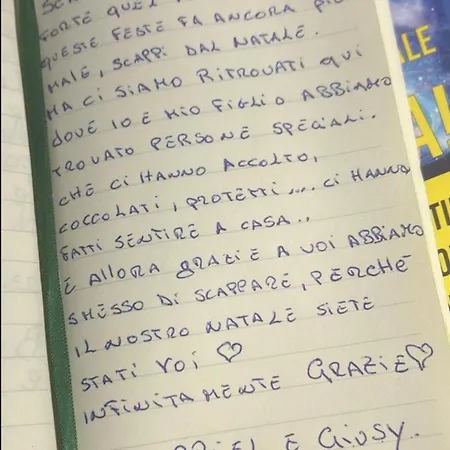 FORTE QUEL
QUESTE FESTE FA ANCORA PIÙ
MALE, SCAPPI DAL NATALE.
MA CI SIAMO RITROVATI QUI
DOVE IO E MIO FIGLIO ABBIAMO
TROVATO PERSONE SPECIALI.
CHE CI HANNO ACCOLTO,
COCCOLATI, PROTETTI.... CI HANNO
FATTI SENTIRE A CASA..
E ALLORA GRAZIE A VOI ABBIAMO
SMESSO DI SCAPPARE, PERCHÉ
IL NOSTRO NATALE SIETE
STATI VOI ♡
INFINITAMENTE GRAZIE♡
E GIUSY.
ALE